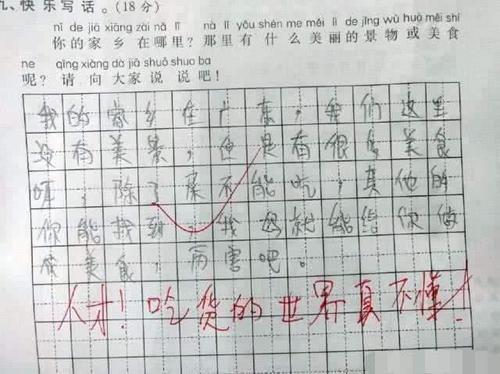 九、快乐写话。(18分)
nǐ de jiā xiāng zài nǎ lǐ nà lǐ yǒu shén me měi lì de jǐng wù huò měi shí
你的家乡在哪里?那里有什么美丽的景物或美食
ne qǐng xiàng dà jiā shuō shuo ba
呢?请向大家说说吧!
我的家乡在广东,我们这里
没有美景,但是有很多美食
呵,除了桌不能吃,其他的
你能找到,我妈就能给你做
成美食,厉害吧。
人才!吃货的世界真不懂!